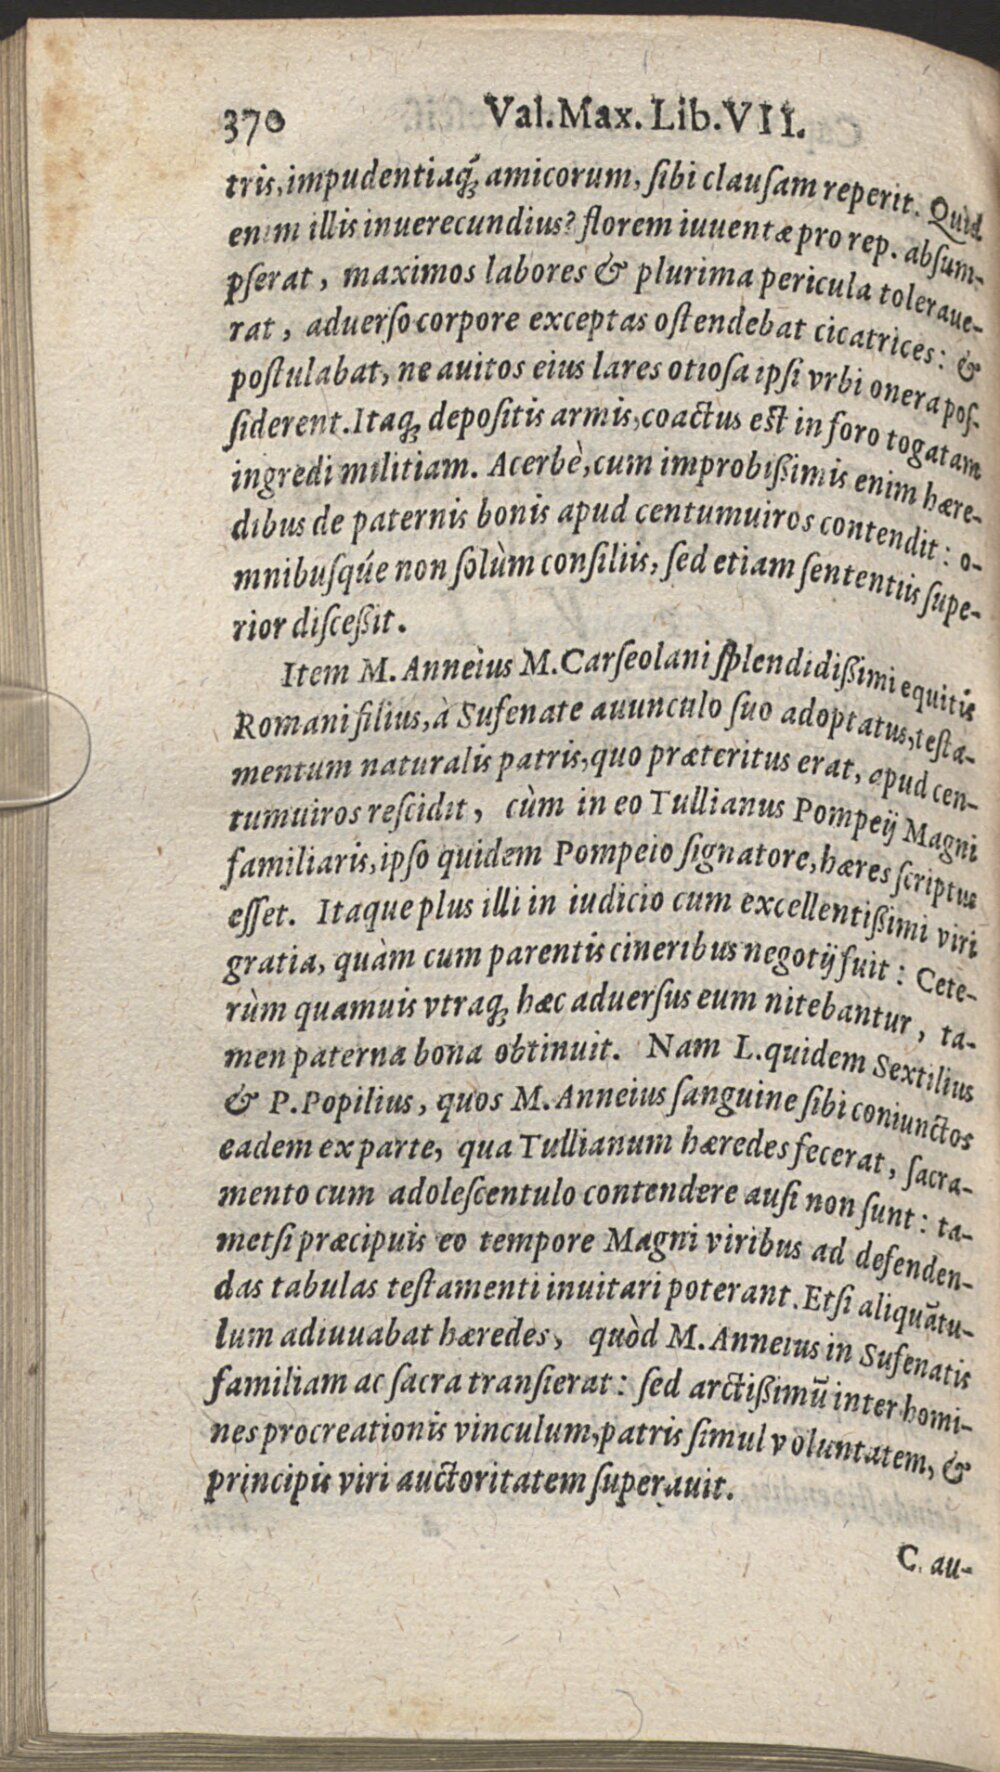 370 Val. Max. Lib. VII.
tris, impudentiaq́ꝫ amicorum, ſibi clauſam reperit. Quid
enim illis inuerecundius? florem iuuentæ pro rep. abſum-
pſerat, maximos labores & plurima pericula toleraue-
rat, aduerſo corpore exceptas oſtendebat cicatrices: &
poſtulabat, ne auitos eius lares otioſa ipſi vrbi onera poſ-
ſiderent. Itaqꝫ depoſitis armis, coactus eſt in foro togatam
ingredi militiam. Acerbè, cum improbißimis enim hære-
dibus de paternis bonis apud centumuiros contendit: o-
mnibuſqúe non ſolùm conſiliis, ſed etiam ſententiis ſupe-
rior diſceßit.
Item M. Anneìus M. Carſeolani ſplendidißimi equitis
Romani filius, à Sufenate auunculo ſuo adoptatus, teſta-
mentum naturalis patris, quo præteritus erat, apud cen-
tumuiros reſcidit, cùm in eo Tullianus Pompeij Magni
familiaris, ipſo quidem Pompeio ſignatore, hæres ſcriptus
eſſet. Itaque plus illi in iudicio cum excellentißimi viri
gratia, quàm cum parentis cineribus negotij fuit: Cete-
rùm quamuis vtraqꝫ hæc aduerſus eum nitebantur, ta-
men paterna bona obtinuit. Nam L. quidem Sextilius
& P. Popilius, quos M. Anneius ſanguine ſibi coniunctos
eadem ex parte, qua Tullianum hæredes fecerat, ſacra-
mento cum adoleſcentulo contendere auſi non ſunt: ta-
metſi præcipuis eo tempore Magni viribus ad defenden-
das tabulas teſtamenti inuitari poterant. Etſi aliquātu-
lum adiuuabat hæredes, quòd M. Anneius in Sufenatis
familiam ac ſacra tranſierat: ſed arctißimū inter homi-
nes procreationis vinculum, patris ſimul voluntatem, &
principis viri auctoritatem ſuperauit.
C. au-